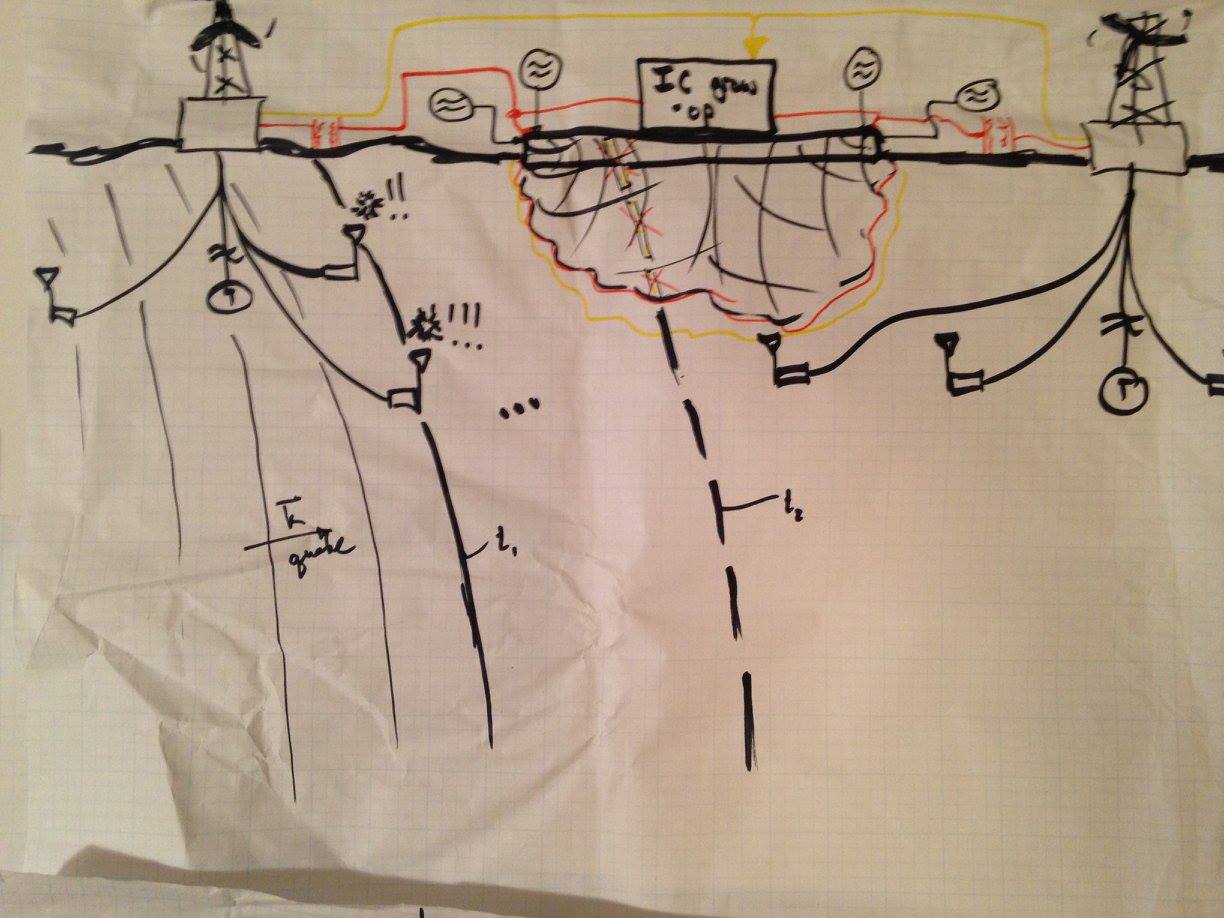 IC grow
op
!!
!!!
T
T
...
k
quake
t₁
t₂